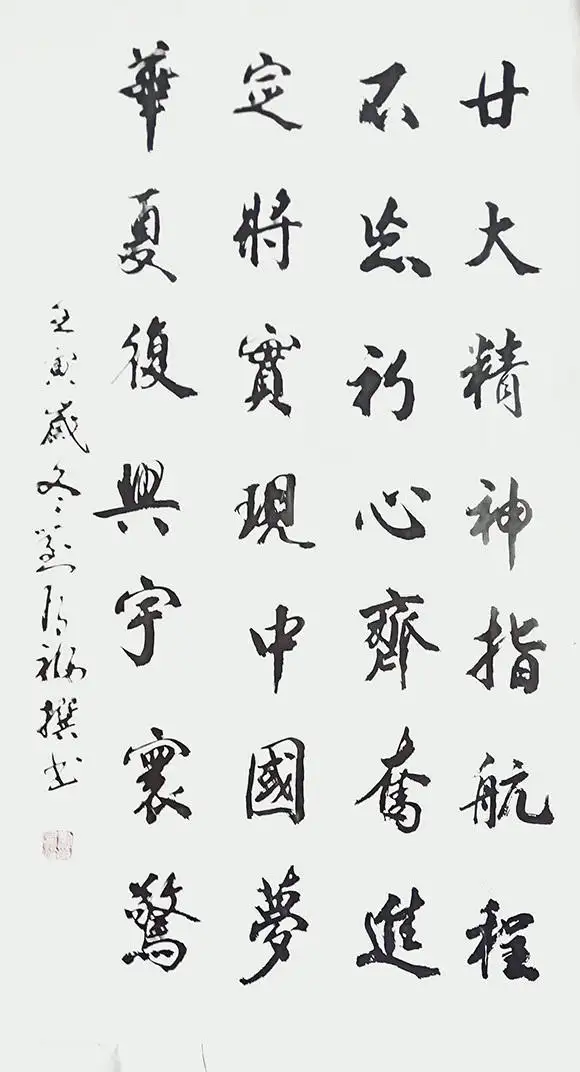 廿大精神指航程
不忘初心齊奮進
定將實現中國夢
華夏復興宇寰驚
壬寅歲冬撰书